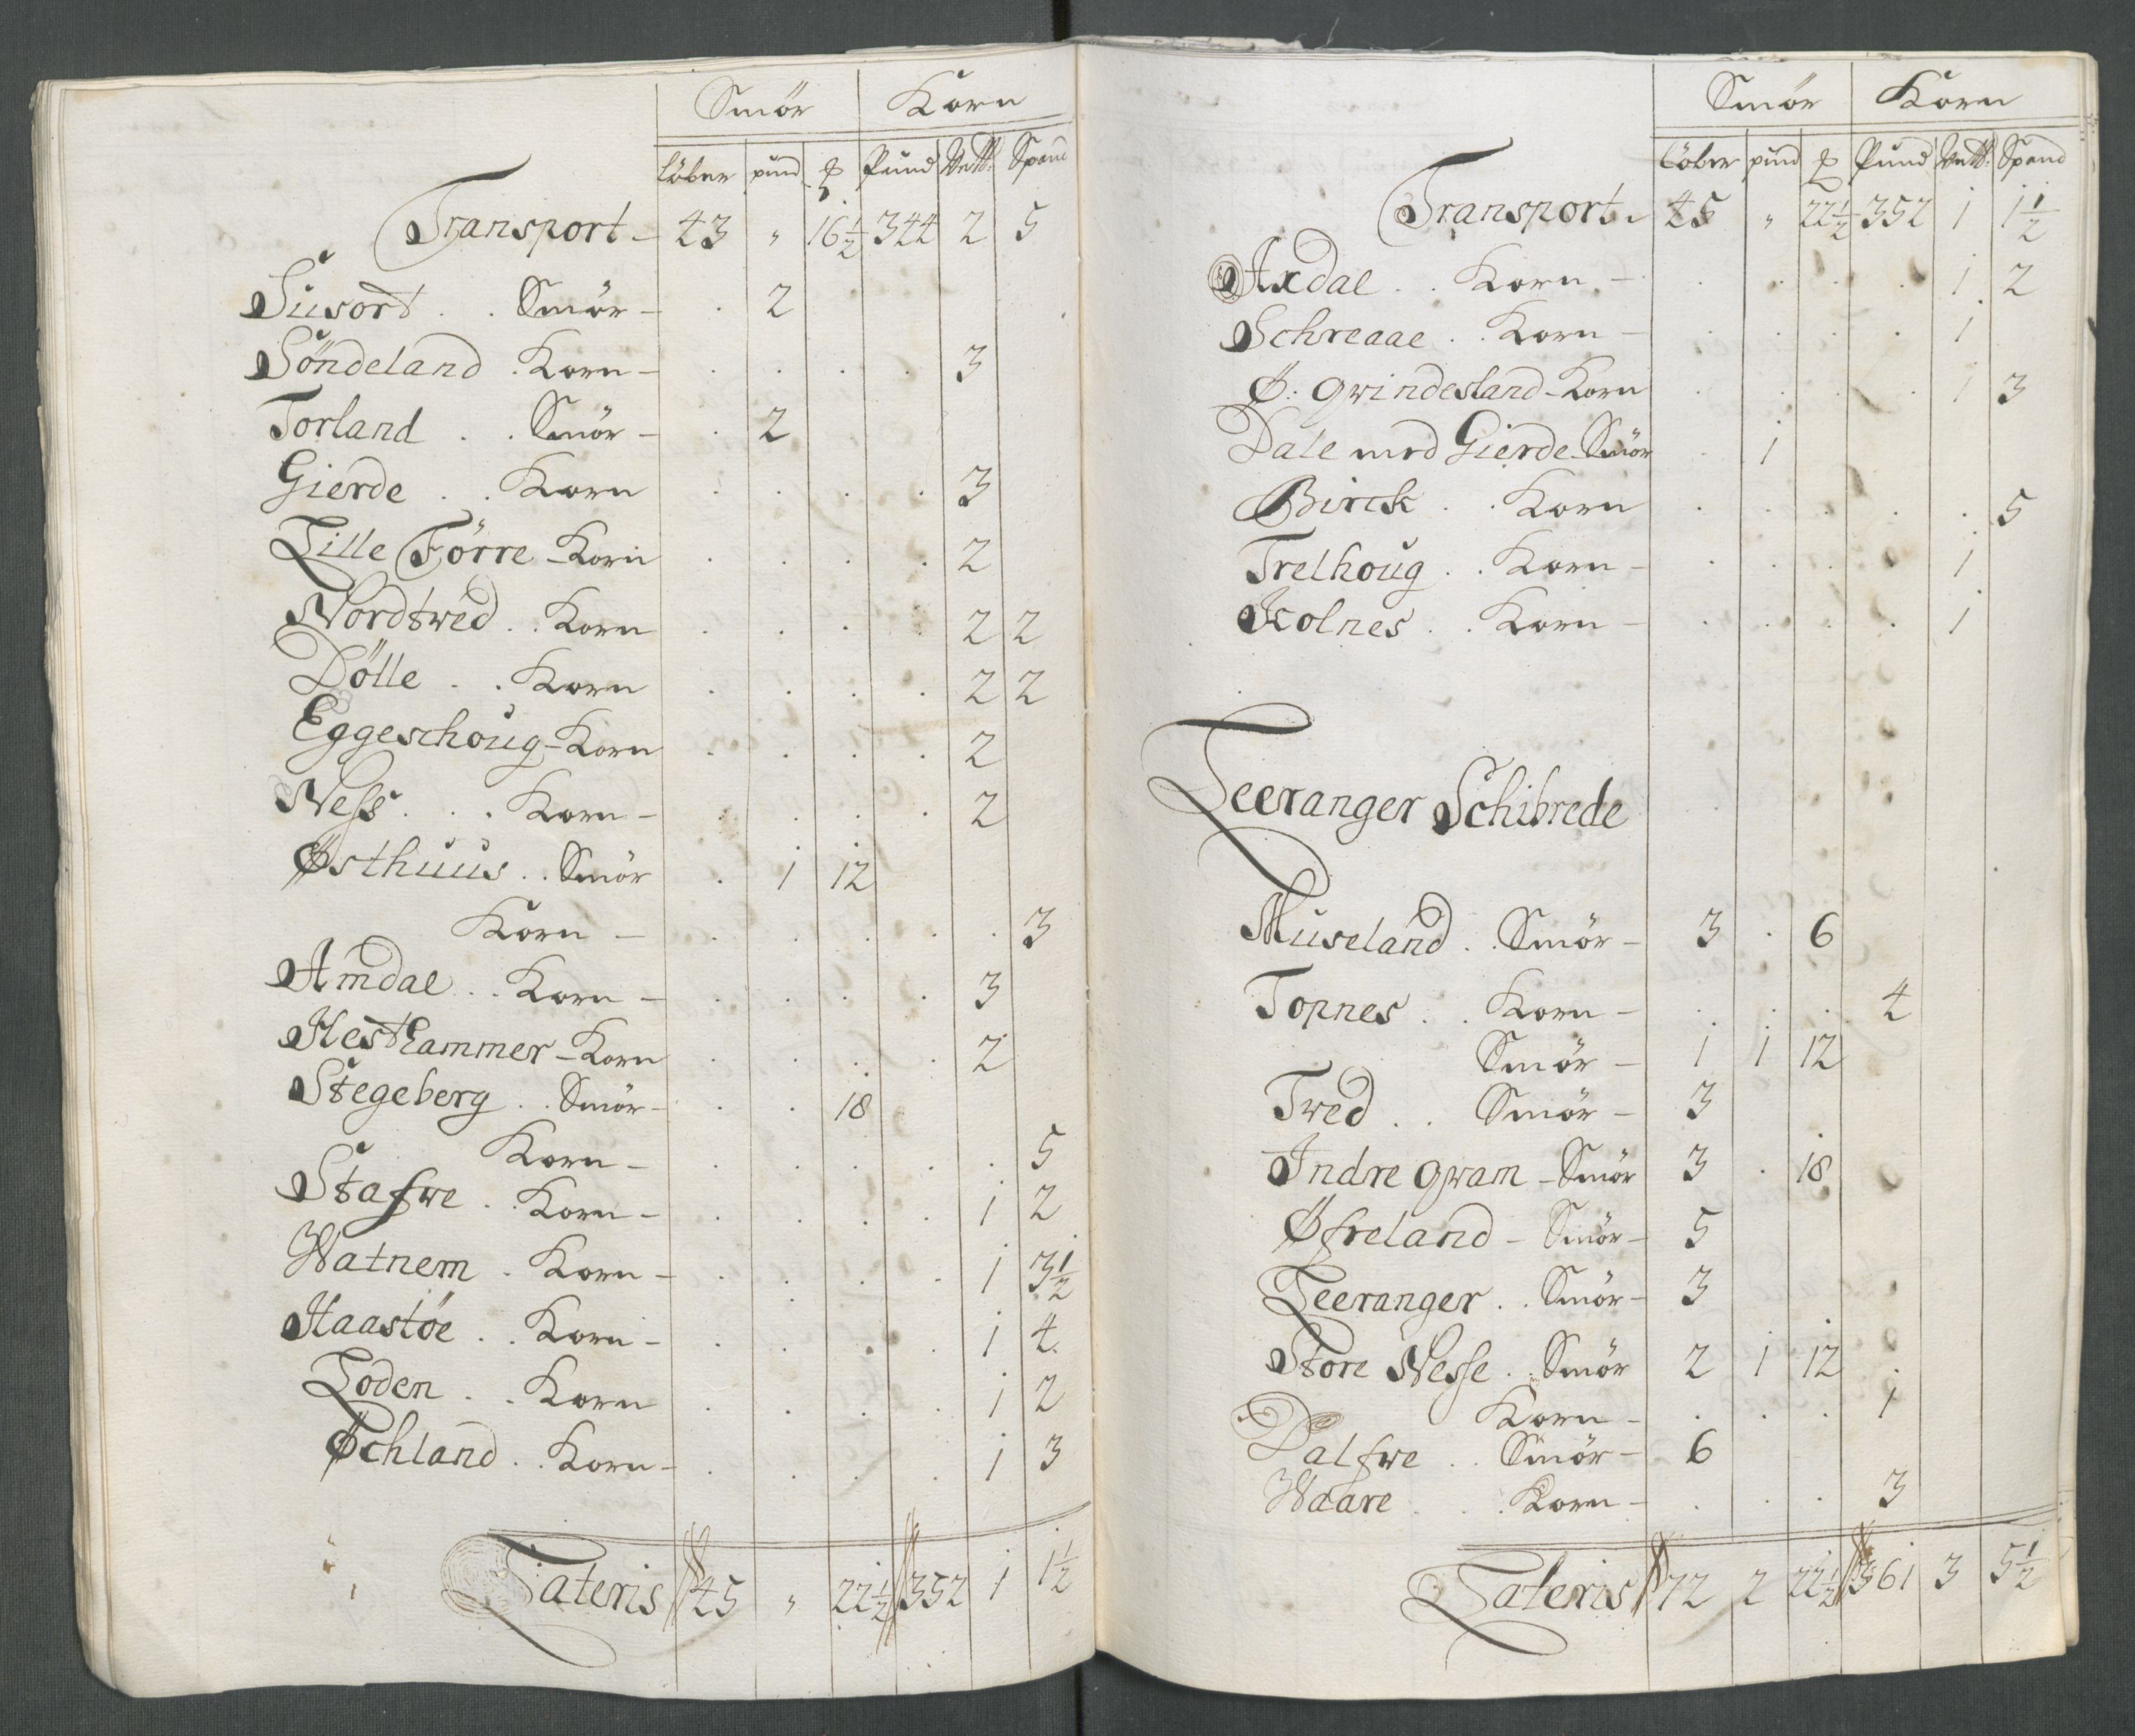 Smör Korn
löber pund ℔ Pund Vett: Spand
Transport - 43 " 16½ 344 2 5
Susort . . Smör - . 2
Söndeland . Korn - . . . . 3
Torland . . Smör - . 2
Gierde . . Korn . . . . 3
Lille Förre - Korn . . . . 2
Nordtwed . . Korn . . . . 2 2
Dölle . . Korn . . . . 2 2
Eggeschoug - Korn . . . . 2
Ness . . . Korn - . . . . 2
Østhuus . . Smör . 1 12
Korn - . . . . . 3
Amdal . . Korn - . . . . 3
Hesthammer - Korn . . . . 2
Stegeberg . . Smör - . . 18
Korn - . . . . . 5
Stafwe . . Korn - . . . . 1 2
Watnem . Korn - . . . . 1 3½
Haastöe . . Korn - . . . . 1 4.
Loden . . Korn . . . . 1 2
Øchland . . Korn - . . . . 1 3
Lateris 45 " 22½ 352 1 1½
Smör Korn
löber pund ℔ Pund Vett: Spand
Transport - 45 " 22½ 352 1 1½
Axdal . . Korn - . . . . 1 2
Schreaae . . Korn - . . . . 1
Ø: qwindesland - Korn . . . . 1 3
Dale med Gierde - Smör . 1
Birck . . Korn . . . . . 5
Trelhoug . . Korn - . . . . 1
Kolnes . . Korn - . . . . 1
Leeranger Schibrede
Museland . . Smör - 3 . 6
Topnes . . Korn - . . . 4
Smör - 1 1 12
Twed . . Smör - 3
Indre qwam - Smör 3 . 18
Øfreland - Smör - 5
Leeranger . . Smör - 3
Store Nesse . . Smör 2 1 12
Korn - . . . 1
Dalfwe . . Smör - 6
Waare . . . Korn - . . . 3
Lateris 72 2 22½ 361 3 5½